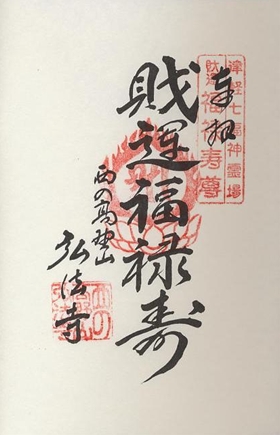 奉拝
津軽七福神霊場
財運福禄寿尊
財運福禄寿
西の高野山
弘法寺